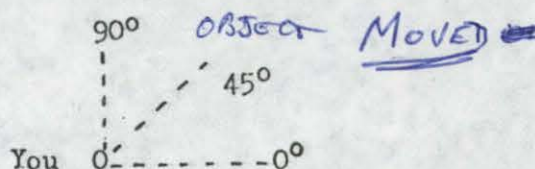 90° OBJECT MOVED
45°
You 0°